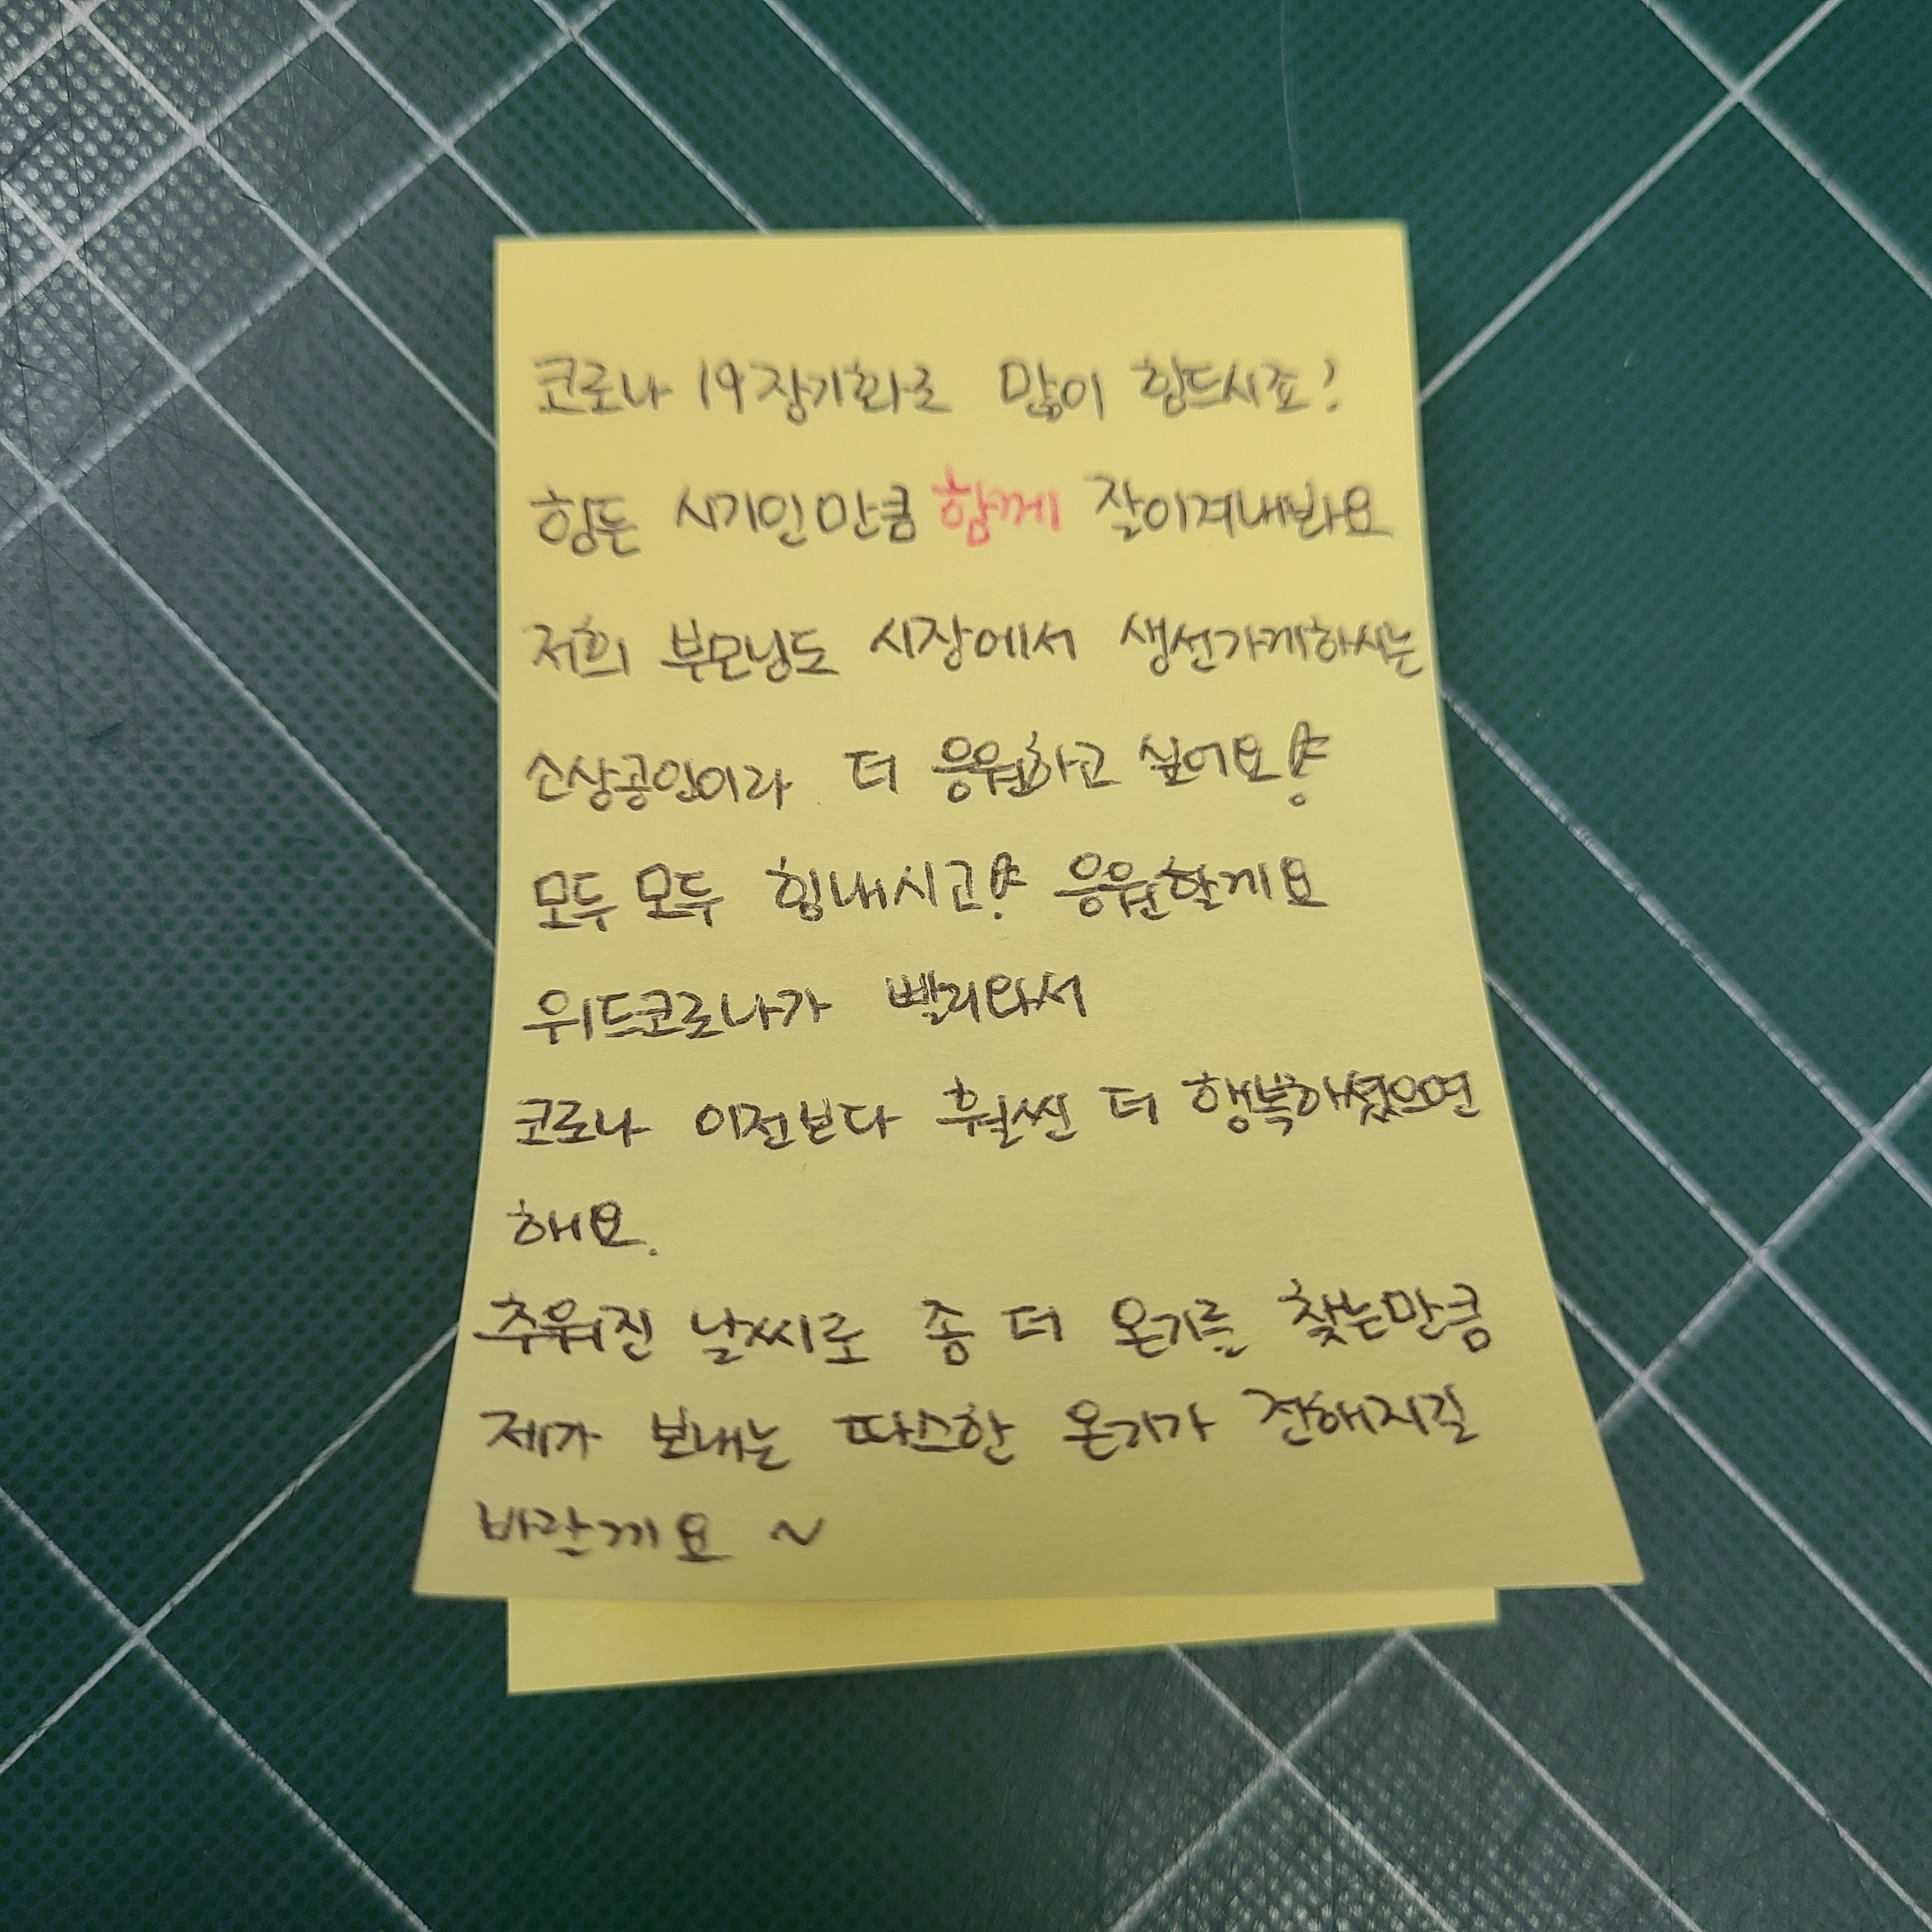 코로나 19장기화로 많이 힘드시죠?
힘든 시기인만큼 함께 잘이겨내봐요
저희 부모님도 시장에서 생선가게하시는
소상공인이라 더 응원하고 싶어요!
모두 모두 힘내시고! 응원할게요
위드코로나가 빨리와서
코로나 이전보다 훨씬 더 행복하셨으면
해요.
추워진 날씨로 좀 더 온기를 찾는만큼
제가 보내는 따스한 온기가 전해지길
바랄께요 ~